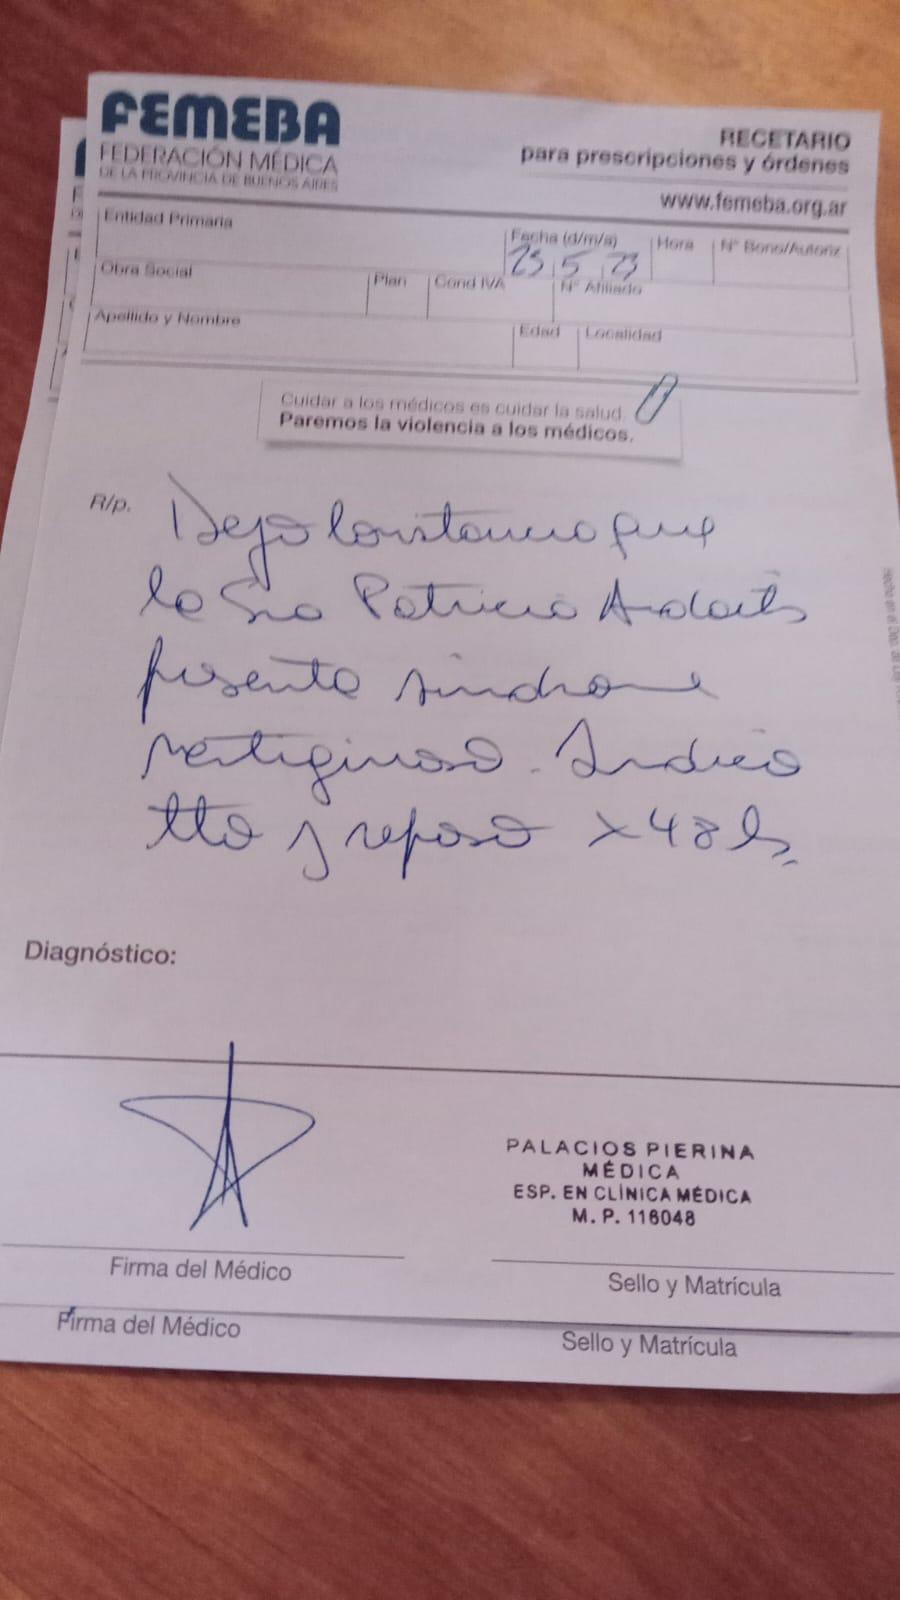 FEMEBA
FEDERACIÓN MÉDICA
DE LA PROVINCIA DE BUENOS AIRES
RECETARIO
para prescripciones y órdenes
www.femeba.org.ar
Entidad Primaria
Fecha (d/m/a)
Hora
N° Bono/Autoriz
23 5 23
Obra Social
Plan
Cond IVA
N° Afiliado
Apellido y Nombre
Edad
Localidad
Cuidar a los médicos es cuidar la salud.
Paremos la violencia a los médicos.
R/p.
Dejo Constancia que
la Sra Patricia
presenta síndrome
vertiginoso. Indico
tto y reposo x 48 hs.
Diagnóstico:
PALACIOS PIERINA
MÉDICA
ESP. EN CLÍNICA MÉDICA
M. P. 116048
Firma del Médico
Sello y Matrícula
Firma del Médico
Sello y Matrícula